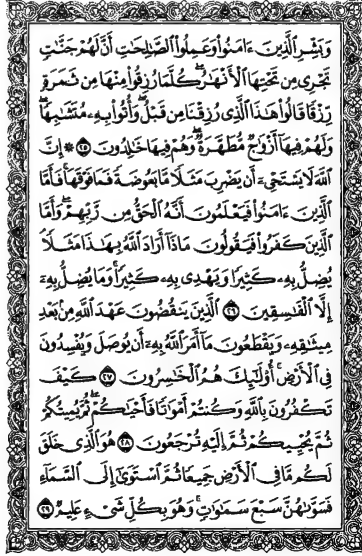 وَبَشِّرِ الَّذِينَ ءَامَنُوا وَعَمِلُوا الصَّٰلِحَٰتِ أَنَّ لَهُمْ جَنَّٰتٍ
تَجْرِى مِن تَحْتِهَا الْأَنْهَٰرُ ۖ كُلَّمَا رُزِقُوا مِنْهَا مِن ثَمَرَةٍ
رِّزْقًا قَالُوا هَٰذَا الَّذِى رُزِقْنَا مِن قَبْلُ ۖ وَأُتُوا بِهِۦ مُتَشَٰبِهًا ۖ
وَلَهُمْ فِيهَا أَزْوَٰجٌ مُّطَهَّرَةٌ ۖ وَهُمْ فِيهَا خَٰلِدُونَ ٢٥ ۞ إِنَّ
اللَّهَ لَا يَسْتَحْىِۦ أَن يَضْرِبَ مَثَلًا مَّا بَعُوضَةً فَمَا فَوْقَهَا ۚ فَأَمَّا
الَّذِينَ ءَامَنُوا فَيَعْلَمُونَ أَنَّهُ الْحَقُّ مِن رَّبِّهِمْ ۖ وَأَمَّا
الَّذِينَ كَفَرُوا فَيَقُولُونَ مَاذَا أَرَادَ اللَّهُ بِهَٰذَا مَثَلًا ۘ
يُضِلُّ بِهِۦ كَثِيرًا وَيَهْدِى بِهِۦ كَثِيرًا ۚ وَمَا يُضِلُّ بِهِۦ
إِلَّا الْفَٰسِقِينَ ٢٦ الَّذِينَ يَنقُضُونَ عَهْدَ اللَّهِ مِن بَعْدِ
مِيثَٰقِهِۦ وَيَقْطَعُونَ مَا أَمَرَ اللَّهُ بِهِۦ أَن يُوصَلَ وَيُفْسِدُونَ
فِى الْأَرْضِ ۚ أُولَٰئِكَ هُمُ الْخَٰسِرُونَ ٢٧ كَيْفَ
تَكْفُرُونَ بِاللَّهِ وَكُنتُمْ أَمْوَٰتًا فَأَحْيَٰكُمْ ۖ ثُمَّ يُمِيتُكُمْ
ثُمَّ يُحْيِيكُمْ ثُمَّ إِلَيْهِ تُرْجَعُونَ ٢٨ هُوَ الَّذِى خَلَقَ
لَكُم مَّا فِى الْأَرْضِ جَمِيعًا ثُمَّ اسْتَوَىٰ إِلَى السَّمَاءِ
فَسَوَّىٰهُنَّ سَبْعَ سَمَٰوَٰتٍ ۚ وَهُوَ بِكُلِّ شَىْءٍ عَلِيمٌ ٢٩